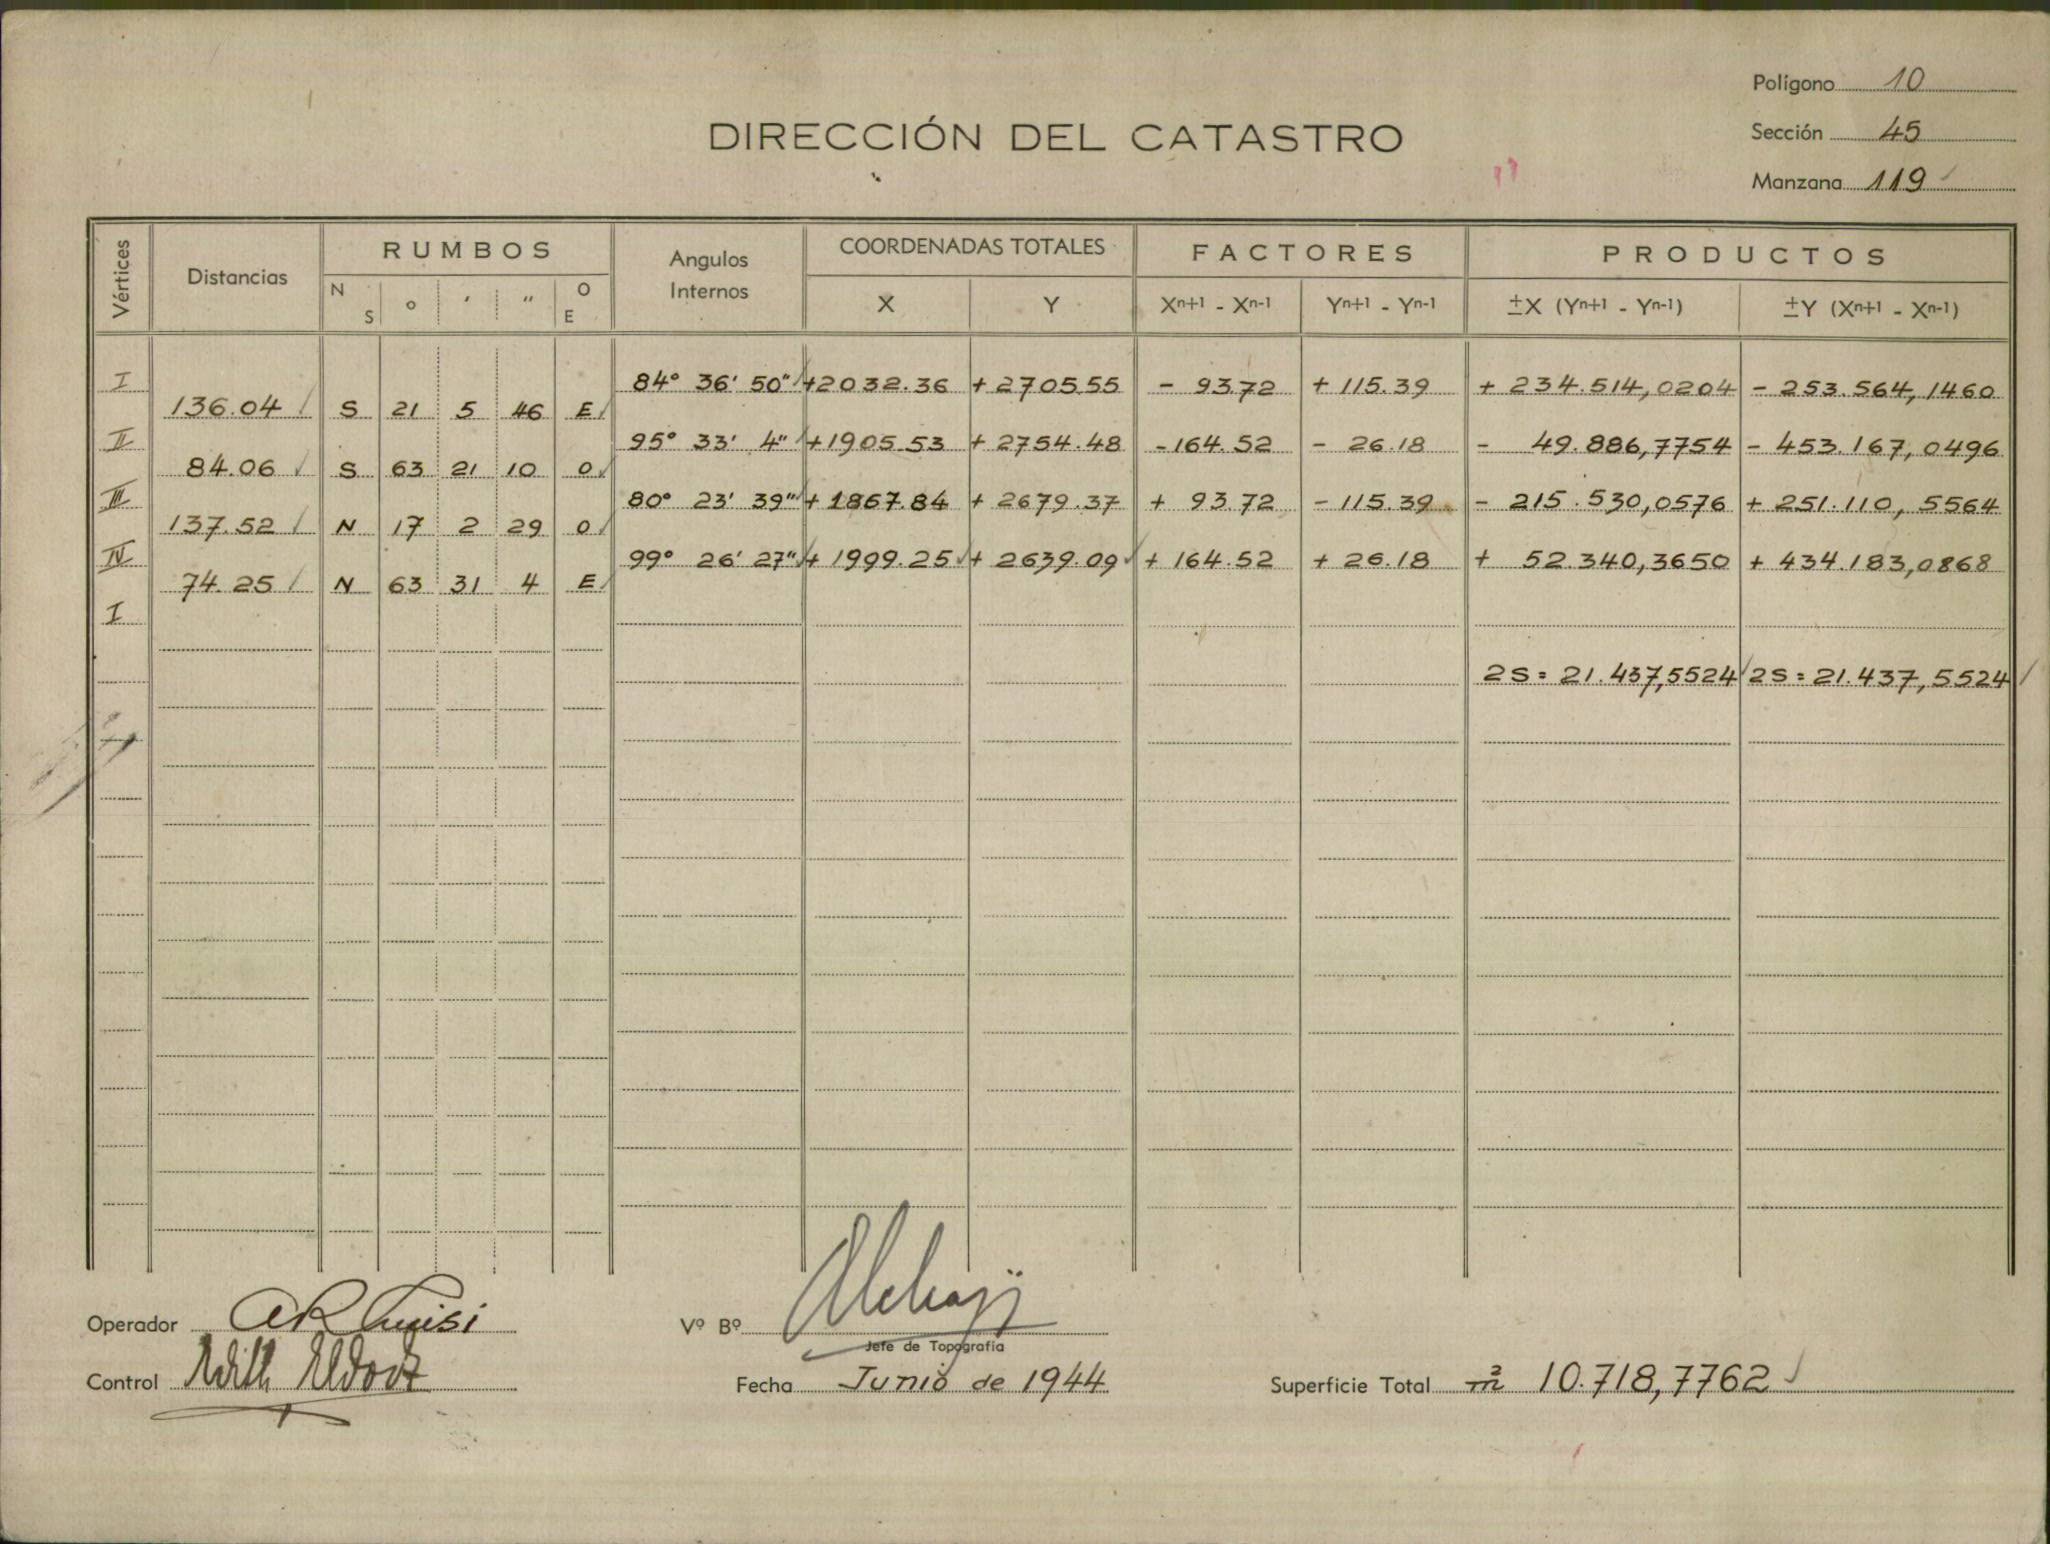 Polígono 10
DIRECCIÓN DEL CATASTRO
Sección 45
Manzana 119
Vértices Distancias RUMBOS Angulos Internos COORDENADAS TOTALES FACTORES PRODUCTOS
N S ° ′ ″ O E X Y Xn+1 - Xn-1 Yn+1 - Yn-1 ±X (Yn+1 - Yn-1) ±Y (Xn+1 - Xn-1)
I 84° 36' 50" +2032.36 + 2705.55 - 93.72 + 115.39 + 234.514,0204 - 253.564,1460
136.04 S 21 5 46 E
II 95° 33' 4" +1905.53 + 2754.48 -164.52 - 26.18 - 49.886,7754 - 453.167,0496
84.06 S 63 21 10 O
III 80° 23' 39" + 1867.84 + 2679.37 + 93.72 - 115.39 - 215.530,0576 + 251.110,5564
137.52 N 17 2 29 O
IV 99° 26' 27" + 1999.25 + 2639.09 + 164.52 + 26.18 + 52.340,3650 + 434.183,0868
74.25 N 63 31 4 E
I
2S = 21.437,5524 2S = 21.437,5524
Operador
Vº Bº
Jefe de Topografía
Control
Fecha Junio de 1944
Superficie Total m² 10.718,7762